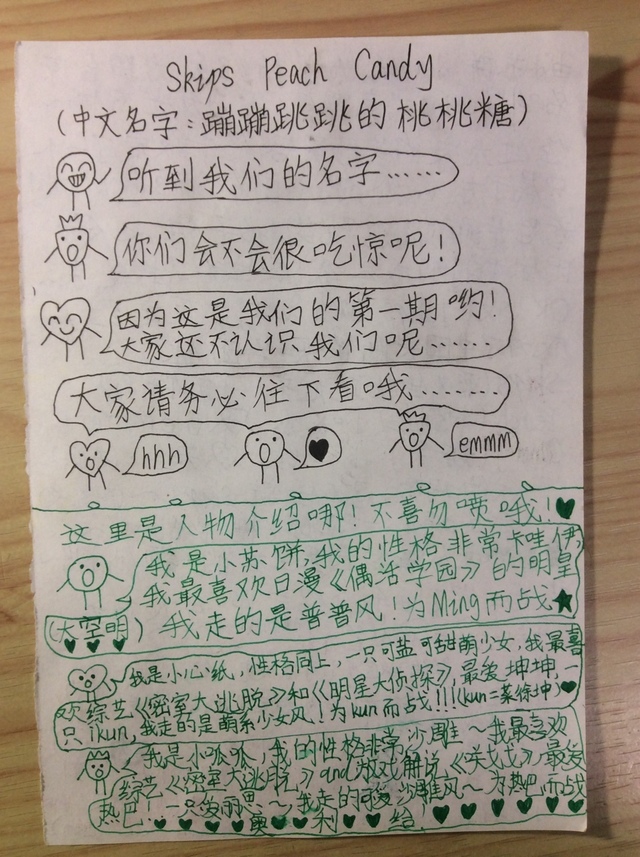 Skips Peach Candy
(中文名字:蹦蹦跳跳的桃桃糖)
听到我们的名字……
你们会不会很吃惊呢!
因为这是我们的第一期哟!
大家还不认识我们呢……
大家请务必往下看哦…….
hhh
emmm
这里是人物介绍哪!不喜勿喷哦!
我是小苏饼,我的性格非常卡哇伊,
我最喜欢日漫《偶活学园》的明星
(大空明)我走的是普普风!为Ming而战
我是小心纸,性格同上,一只可盐可甜萌少女,我最喜
欢综艺《密室大逃脱》和《明星大侦探》,最爱坤坤,一
只ikun,我走的是萌系少女风!为kun而战!!!(kun=蔡徐坤)
我是小呱呱,我的性格非常沙雕~我最喜欢
综艺《密室大逃脱》and游戏解说《咲戈》,最爱
热巴!一只爱丽思~我走的可爱沙雕风~为热巴而战
奥利给!